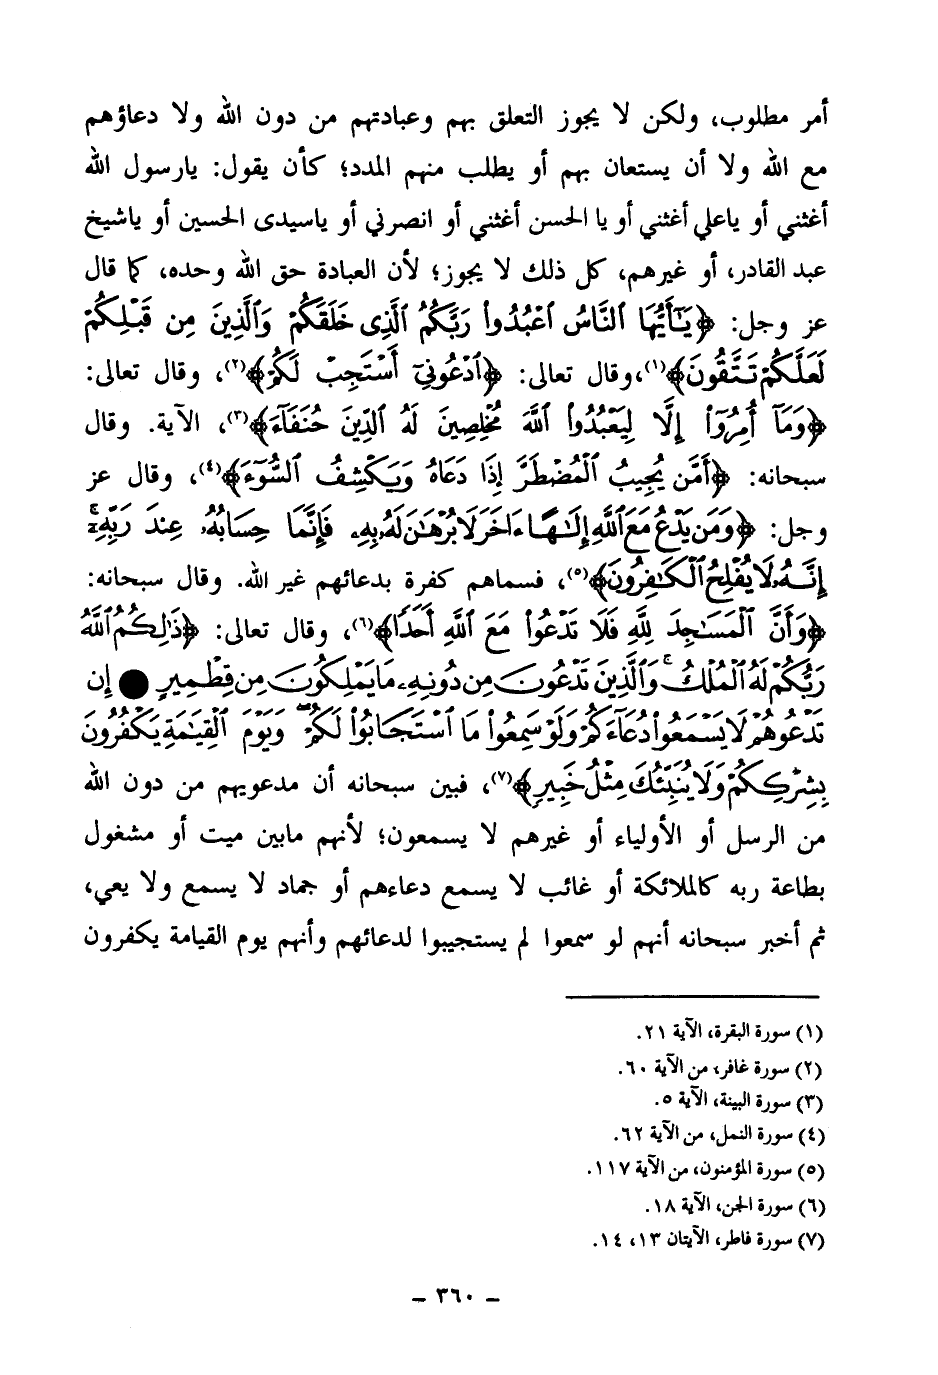 أمر مطلوب، ولكن لا يجوز التعلق بهم وعبادتهم من دون الله ولا دعاؤهم
مع الله ولا أن يستعان بهم أو يطلب منهم المدد؛ كأن يقول: يارسول الله
أغثني أو ياعلي أغثني أو يا الحسن أغثني أو انصرني أو ياسيدى الحسين أو ياشيخ
عبد القادر، أو غيرهم، كل ذلك لا يجوز؛ لأن العبادة حق الله وحده، كما قال
عز وجل: ﴿يَٰٓأَيُّهَا ٱلنَّاسُ ٱعۡبُدُواْ رَبَّكُمُ ٱلَّذِى خَلَقَكُمۡ وَٱلَّذِينَ مِن قَبۡلِكُمۡ
لَعَلَّكُمۡ تَتَّقُونَ﴾(١)، وقال تعالى: ﴿ٱدۡعُونِىٓ أَسۡتَجِبۡ لَكُمۡ﴾(٢)، وقال تعالى:
﴿وَمَآ أُمِرُوٓاْ إِلَّا لِيَعۡبُدُواْ ٱللَّهَ مُخۡلِصِينَ لَهُ ٱلدِّينَ حُنَفَآءَ﴾(٣)، الآية. وقال
سبحانه: ﴿أَمَّن يُجِيبُ ٱلۡمُضۡطَرَّ إِذَا دَعَاهُ وَيَكۡشِفُ ٱلسُّوٓءَ﴾(٤)، وقال عز
وجل: ﴿وَمَن يَدۡعُ مَعَ ٱللَّهِ إِلَٰهًا ءَاخَرَ لَا بُرۡهَٰنَ لَهُۥ بِهِۦ فَإِنَّمَا حِسَابُهُۥ عِندَ رَبِّهِۦٓۚ
إِنَّهُۥ لَا يُفۡلِحُ ٱلۡكَٰفِرُونَ﴾(٥)، فسماهم كفرة بدعائهم غير الله. وقال سبحانه:
﴿وَأَنَّ ٱلۡمَسَٰجِدَ لِلَّهِ فَلَا تَدۡعُواْ مَعَ ٱللَّهِ أَحَدًا﴾(٦)، وقال تعالى: ﴿ذَٰلِكُمُ ٱللَّهُ
رَبُّكُمۡ لَهُ ٱلۡمُلۡكُۚ وَٱلَّذِينَ تَدۡعُونَ مِن دُونِهِۦ مَا يَمۡلِكُونَ مِن قِطۡمِيرٍ ● إِن
تَدۡعُوهُمۡ لَا يَسۡمَعُواْ دُعَآءَكُمۡ وَلَوۡ سَمِعُواْ مَا ٱسۡتَجَابُواْ لَكُمۡۖ وَيَوۡمَ ٱلۡقِيَٰمَةِ يَكۡفُرُونَ
بِشِرۡكِكُمۡ وَلَا يُنَبِّئُكَ مِثۡلُ خَبِيرٍ﴾(٧)، فبين سبحانه أن مدعويهم من دون الله
من الرسل أو الأولياء أو غيرهم لا يسمعون؛ لأنهم مابين ميت أو مشغول
بطاعة ربه كالملائكة أو غائب لا يسمع دعاءهم أو جماد لا يسمع ولا يعي،
ثم أخبر سبحانه أنهم لو سمعوا لم يستجيبوا لدعائهم وأنهم يوم القيامة يكفرون
(١) سورة البقرة، الآية ٢١.
(٢) سورة غافر، من الآية ٦٠.
(٣) سورة البينة، الآية ٥.
(٤) سورة النمل، من الآية ٦٢.
(٥) سورة المؤمنون، من الآية ١١٧.
(٦) سورة الجن، الآية ١٨.
(٧) سورة فاطر، الآيتان ١٣، ١٤.
– ٣٦٠ –